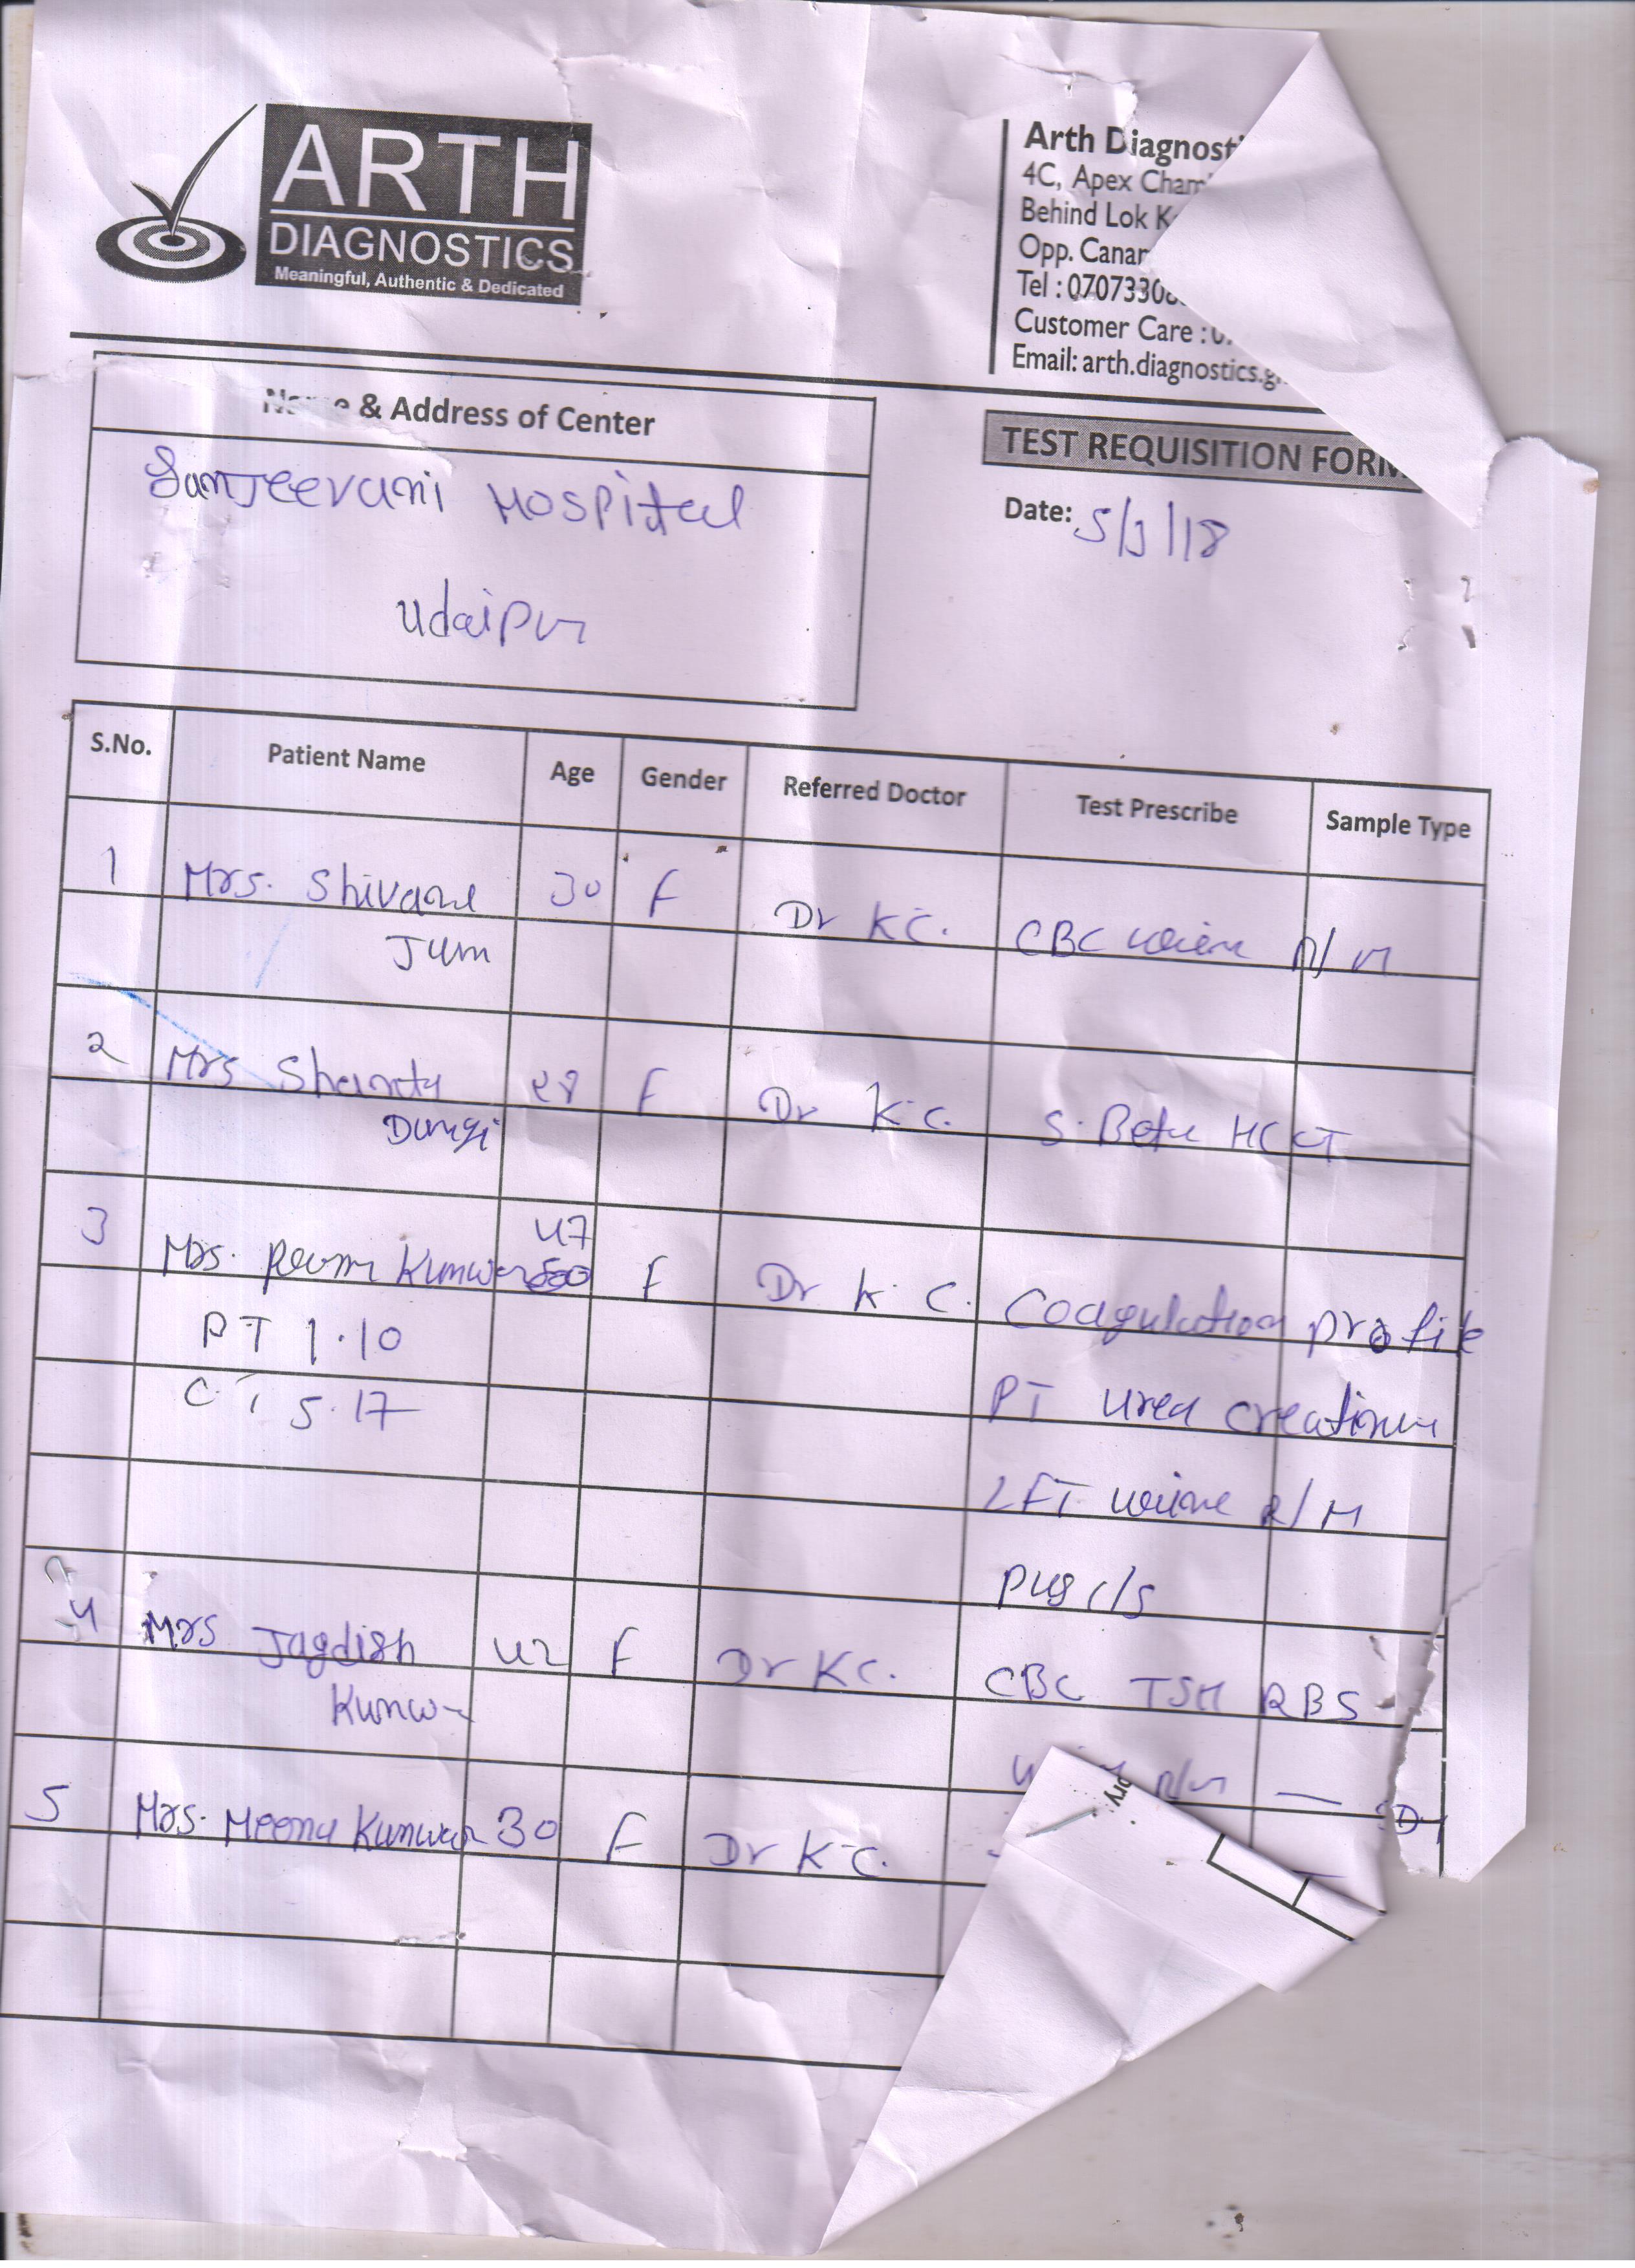 ARTH
DIAGNOSTICS
Meaningful, Authentic & Dedicated
Arth Diagnost
4C, Apex Cham
Behind Lok K
Opp. Canar
Tel : 0707330
Customer Care :
Email: arth.diagnostics.g
& Address of Center
Sanjeevani Hospital
Udaipur
TEST REQUISITION FORM
Date: 5/3/18
S.No. Patient Name Age Gender Referred Doctor Test Prescribe Sample Type
1 Mrs. Shivani 30 F Dr K.C. CBC urine R/M
2 Mrs 28 F Dr K.C. S. Beta HCG
Dungi
3 Mrs. Kunwar 47 F Dr K.C. Coagulation profile
PT 1.10
PT urea creatinine
CT 5.17
LFT urine R/M
pus c/s
4 Mrs Jagdish 42 F Dr K.C. CBC TSH RBS
Kunwar
R/M
5 Mrs. Meena Kunwar 30 F Dr K.C.